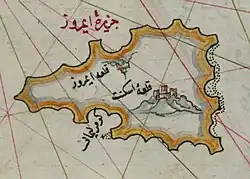 جزيرۀ ايمروز
قلعۀ ايمروز
قلعۀ اسكنت